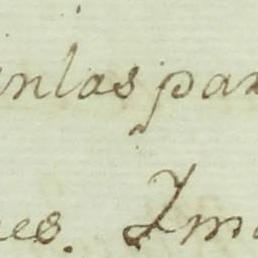 inlas par
es. Ima